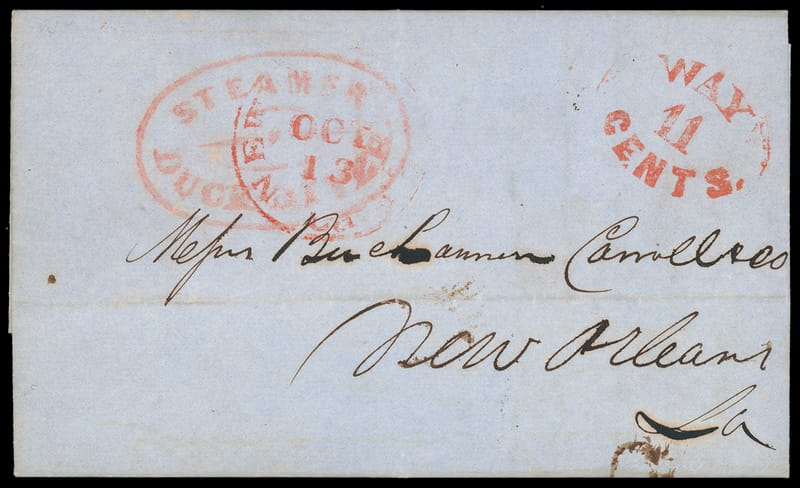 STEAMER
OCT
13
WAY
11
CENTS.
Messrs Buchannon Carroll & Co
New Orleans
La